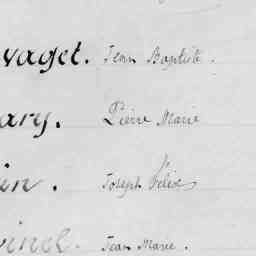 vaget. Jean Baptiste.
ary. Pierre Marie
in. Joseph Félix
vinel. Jean Marie.